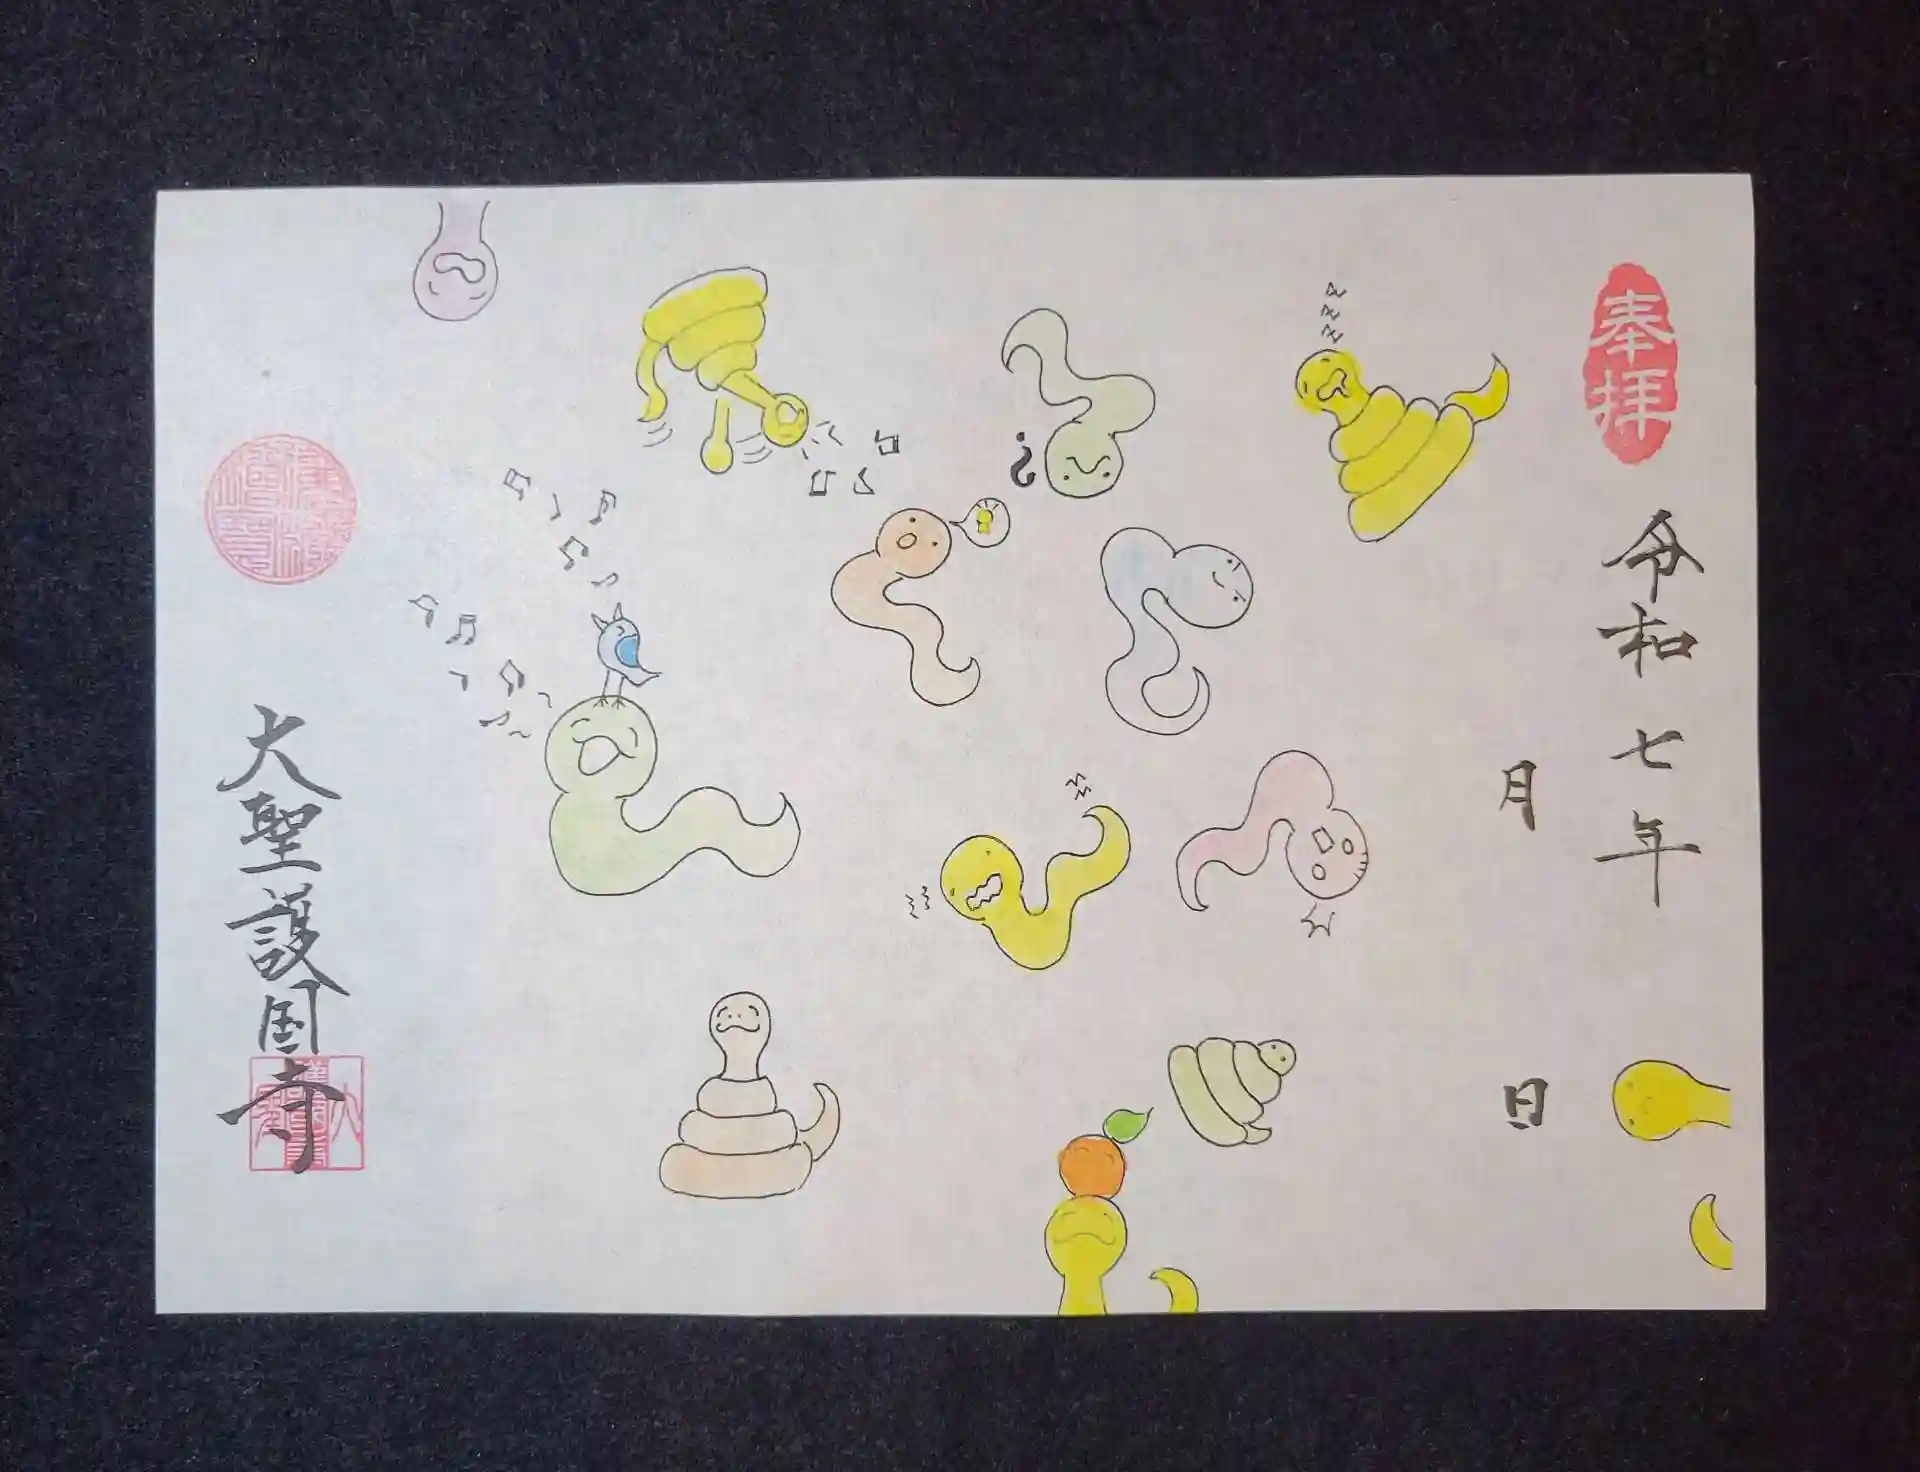 奉拝
令和七年
月 日
大聖護国寺